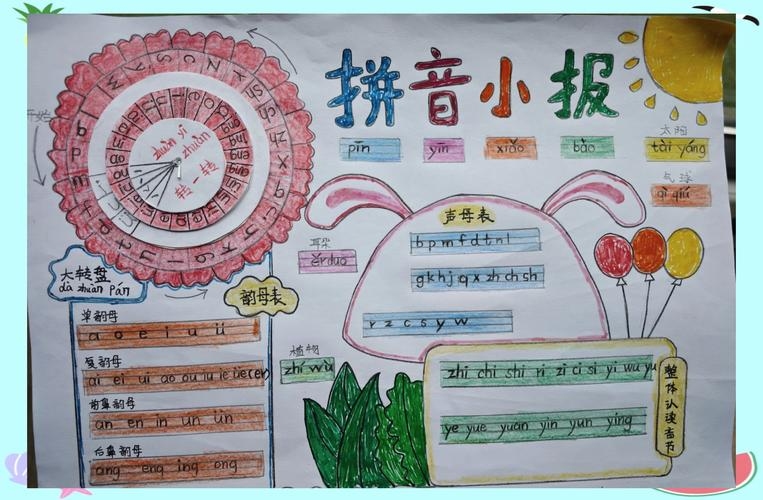 拼音小报
pīn yīn xiǎo bào
太阳
tài yáng
气球
qì qiú
开始
zhuàn yí zhuàn
转一转
大转盘
dà zhuàn pán
韵母表
单韵母
a o e i u ü
复韵母
ai ei ui ao ou iu ie üe(er)
前鼻韵母
an en in un ün
后鼻韵母
ang eng ing ong
耳朵
ěrduo
声母表
b p m f d t n l
g k h j q x zh ch sh
r z c s y w
植物
zhí wù
zhi chi shi ri zi ci si yi wu yu
ye yue yuan yin yun ying
整体认读音节